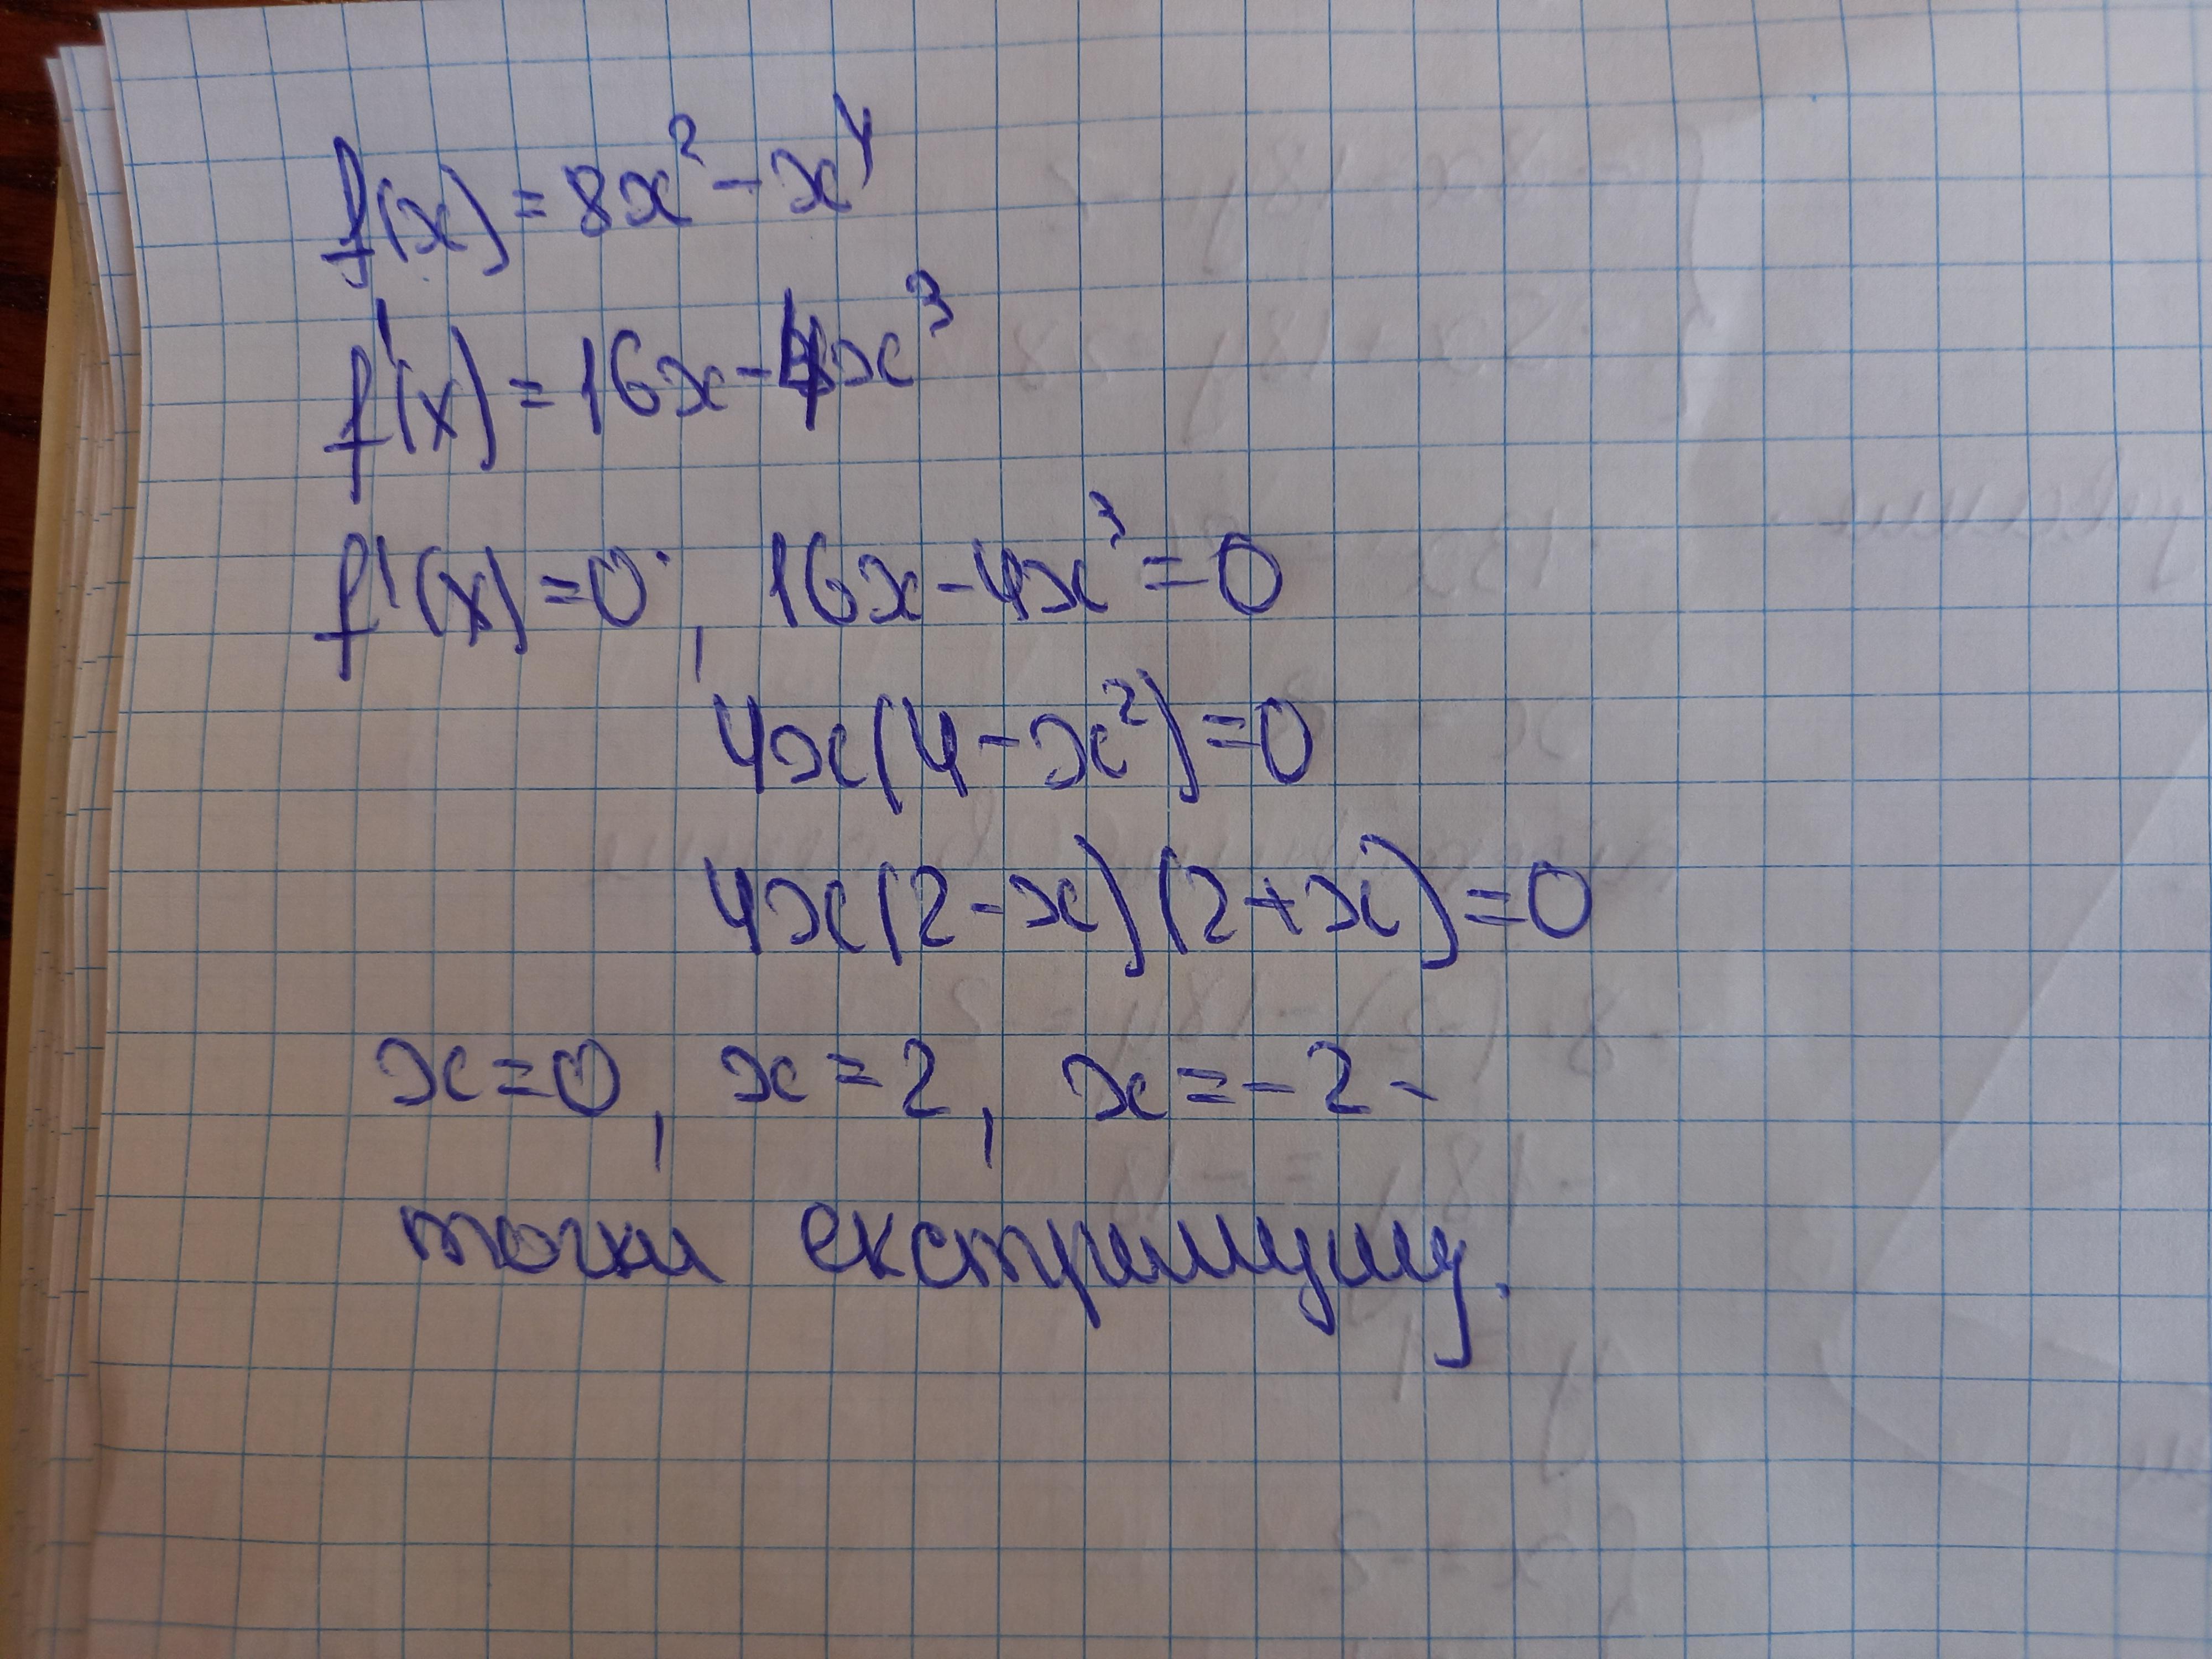 f(x) = 8x² - x⁴
f'(x) = 16x - 4x³
f'(x) = 0, 16x - 4x³ = 0
4x(4 - x²) = 0
4x(2 - x)(2 + x) = 0
x = 0, x = 2, x = -2 -
точки екстримуму.